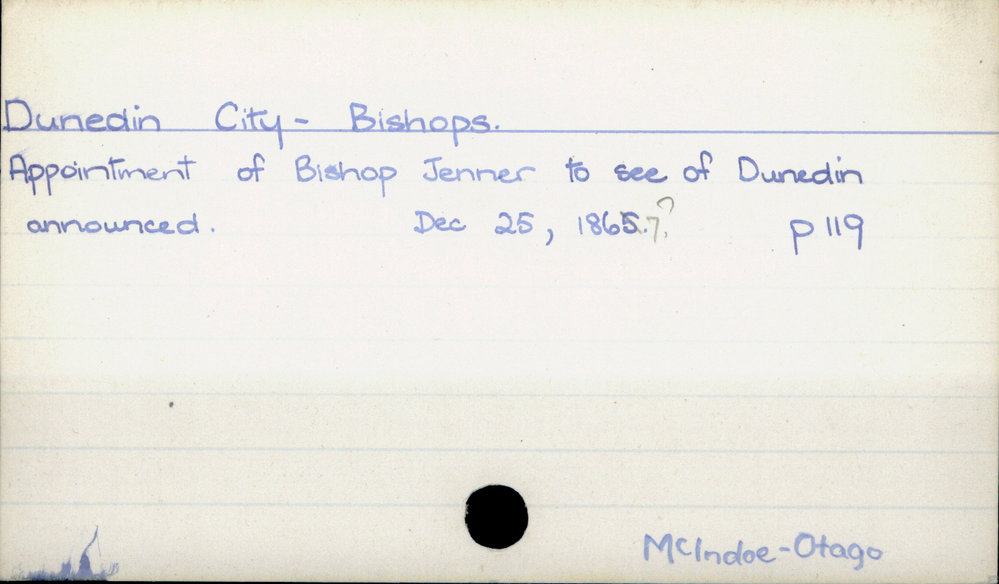 Dunedin City - Bishops.
Appointment of Bishop Jenner to see of Dunedin
announced. Dec 25, 1865. 7? p 119
McIndoe - Otago